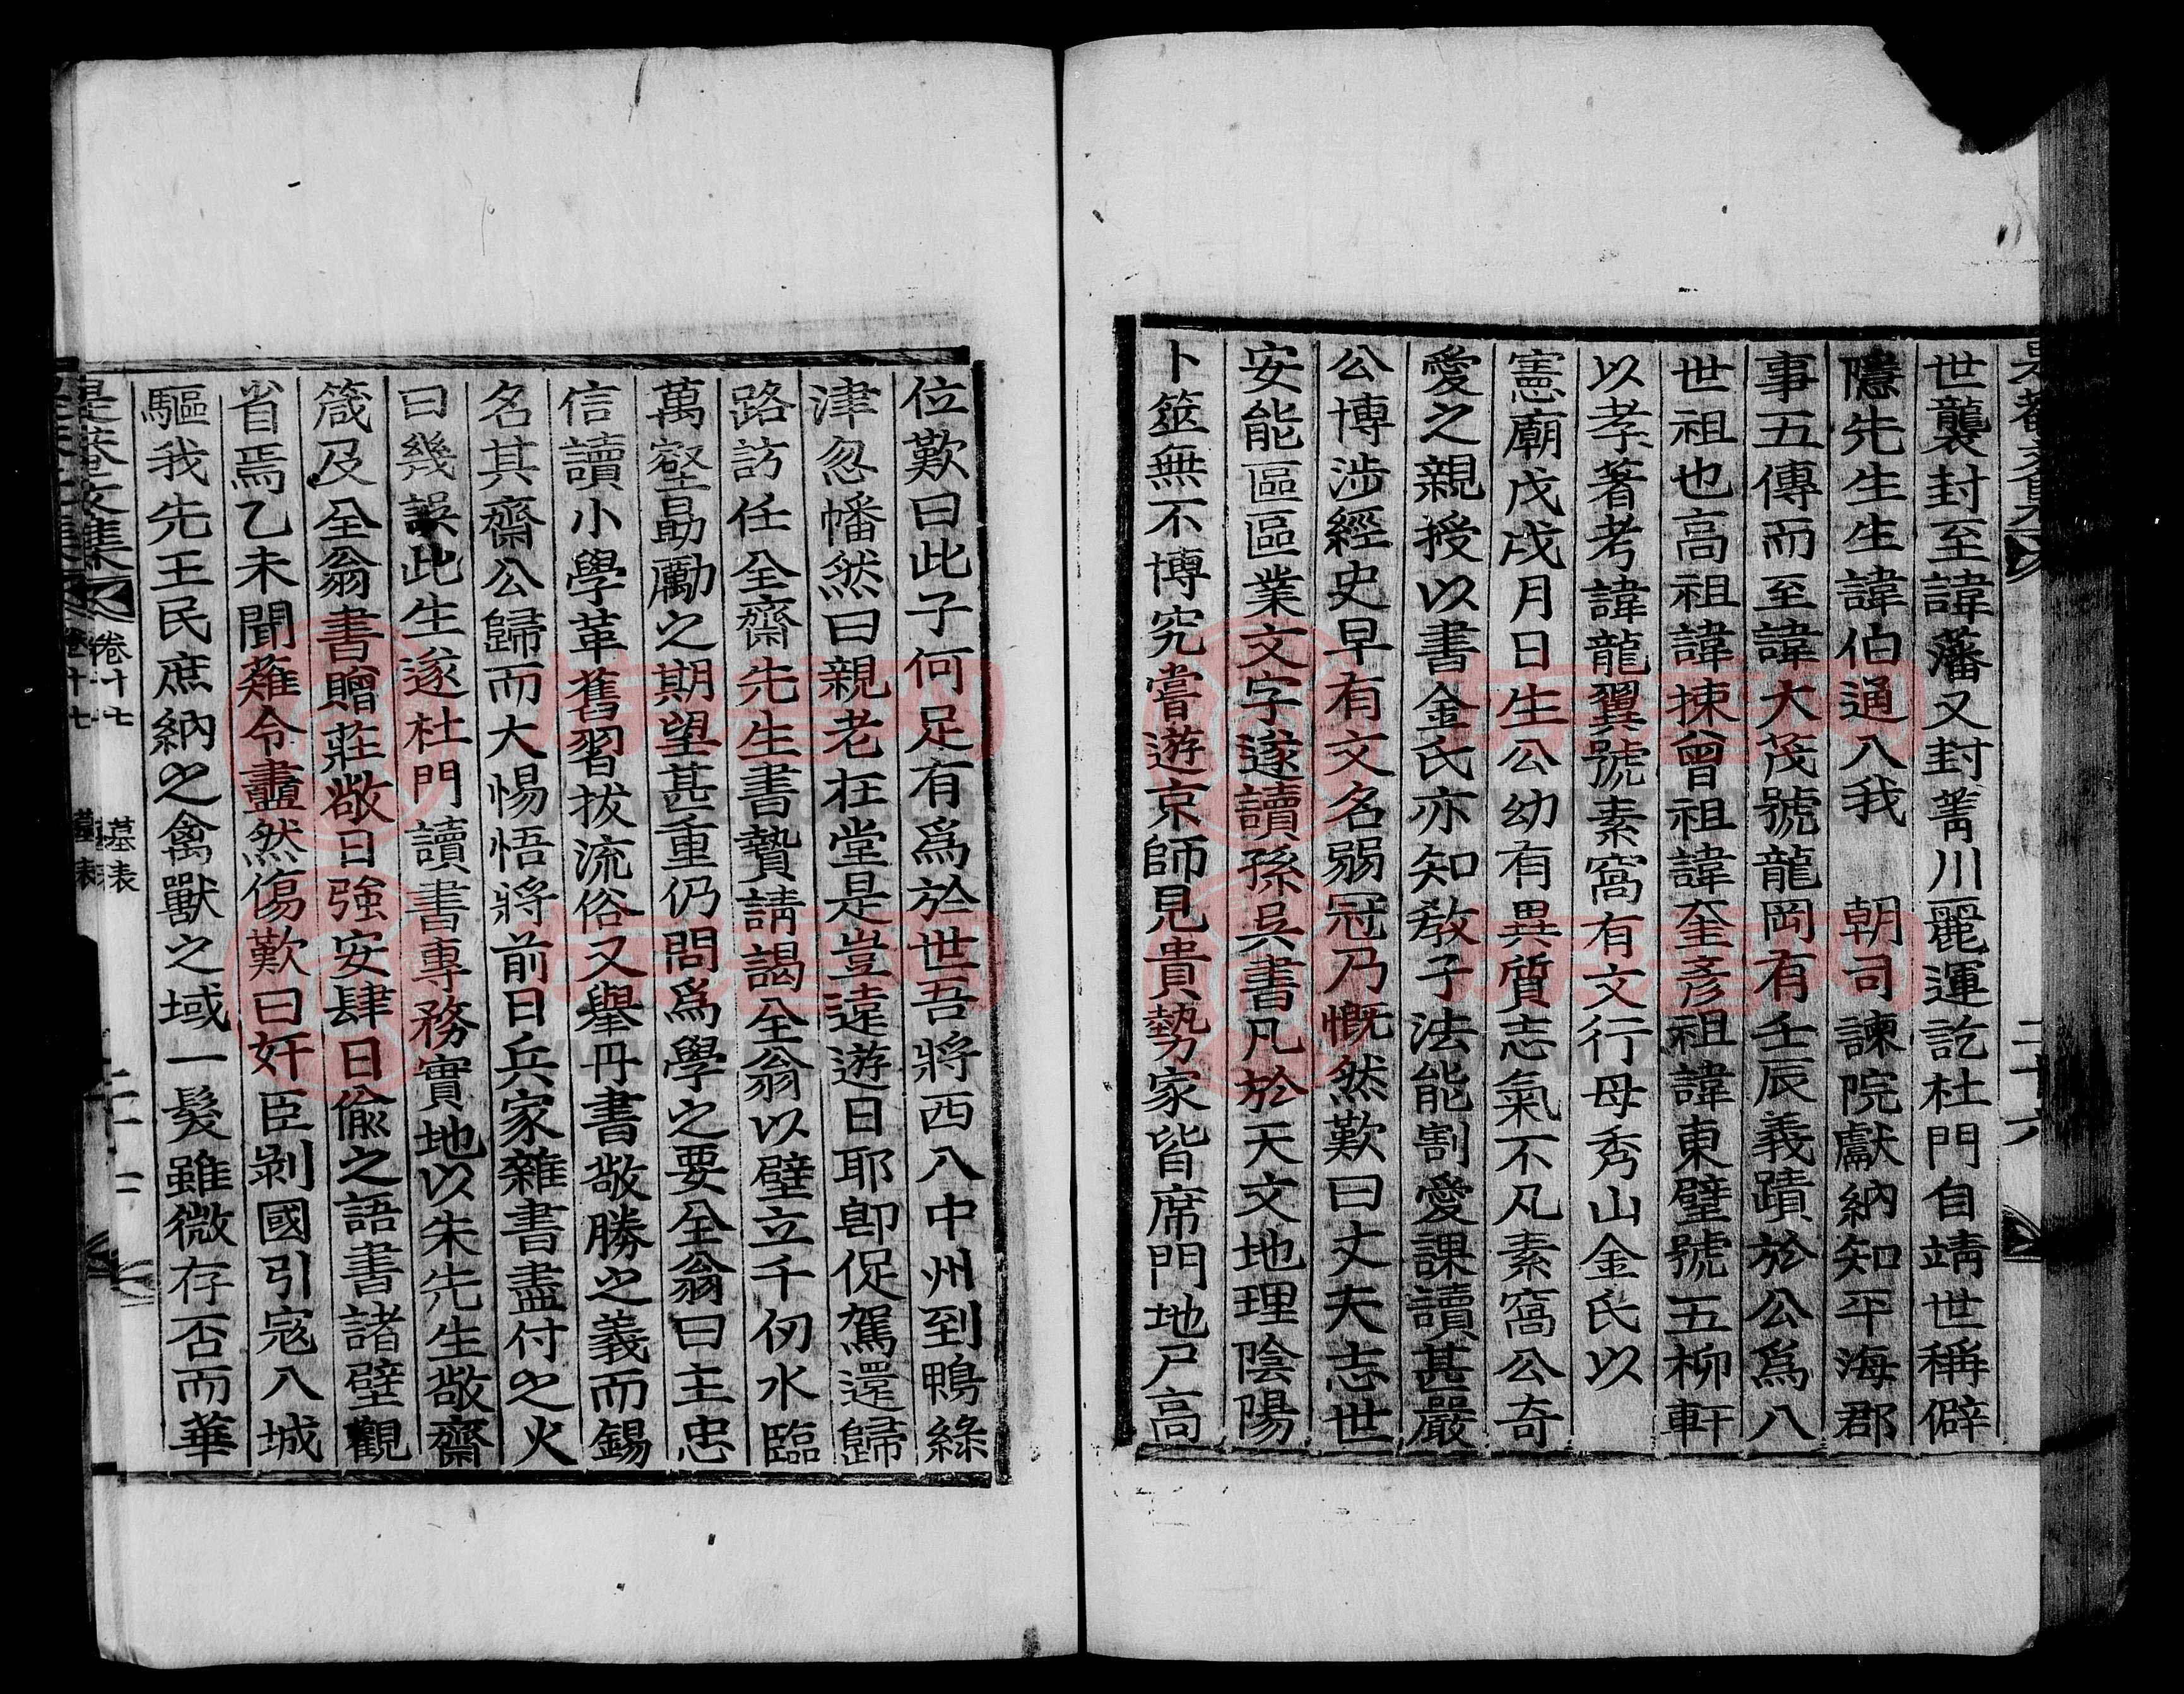 世襲封至諱藩又封菁川麗運訖杜門自靖世稱僻
隱先生生諱伯通入我　朝司諫院獻納知平海郡
事五傳而至諱大茂號龍岡有壬辰義蹟於公爲八
世祖也高祖諱揀曾祖諱奎彦祖諱東壁號五柳軒
以孝著考諱龍翼號素窩有文行母秀山金氏以
憲廟戊戌月日生公幼有異質志氣不凡素窩公奇
愛之親授以書金氏亦知教子法能割愛課讀甚嚴
公博涉經史早有文名弱冠乃慨然歎曰丈夫志世
安能區區業文字遂讀孫吳書凡於天文地理陰陽
卜筮無不博究嘗遊京師見貴勢家皆席門地尸高
位歎曰此子何足有爲於世吾將西入中州到鴨綠
津忽幡然曰親老在堂是豈遠遊日耶卽促駕還歸
路訪任全齋先生書贄請謁全翁以壁立千仞水臨
萬壑勗勵之期望甚重仍問爲學之要全翁曰主忠
信讀小學革舊習拔流俗又擧丹書敬勝之義而錫
名其齋公歸而大惕悟將前日兵家雜書盡付之火
曰幾誤此生遂杜門讀書專務實地以朱先生敬齋
箴及全翁書贈莊敬日強安肆日偸之語書諸壁觀
省焉乙未聞薙令衋然傷歎曰奸臣剝國引寇入城
驅我先王民庶納之禽獸之域一髮雖微存否而華
是菴文集　卷十七　墓表